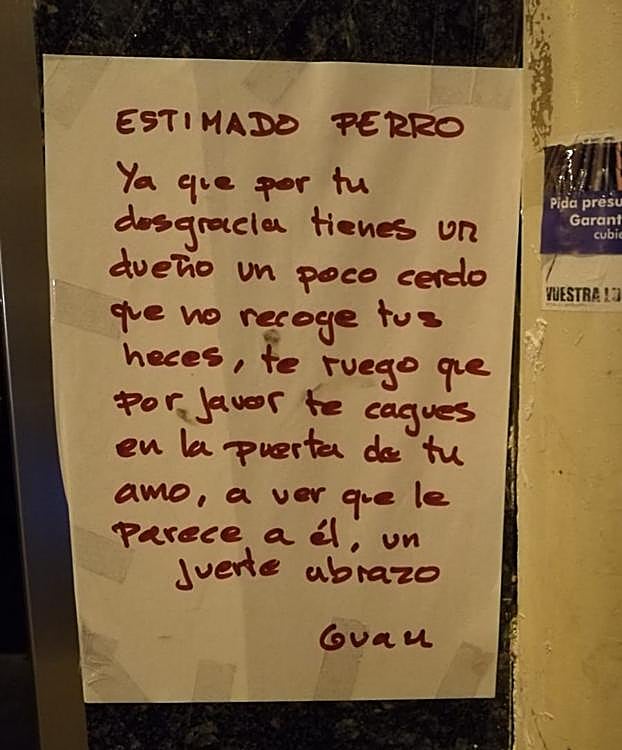 ESTIMADO PERRO
Ya que por tu
desgracia tienes un
dueño un poco cerdo
que no recoge tus
heces, te ruego que
por favor te cagues
en la puerta de tu
amo, a ver que le
parece a él, un
fuerte abrazo
Guau
Pida presu
Garant
cubie
VUESTRA